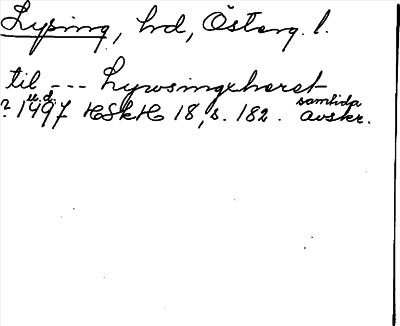 Lysing, hrd, Österg. l.
til --- Lywsingxhæret
u.d.
? 1497 HSkH 18, s. 182. samtida avskr.